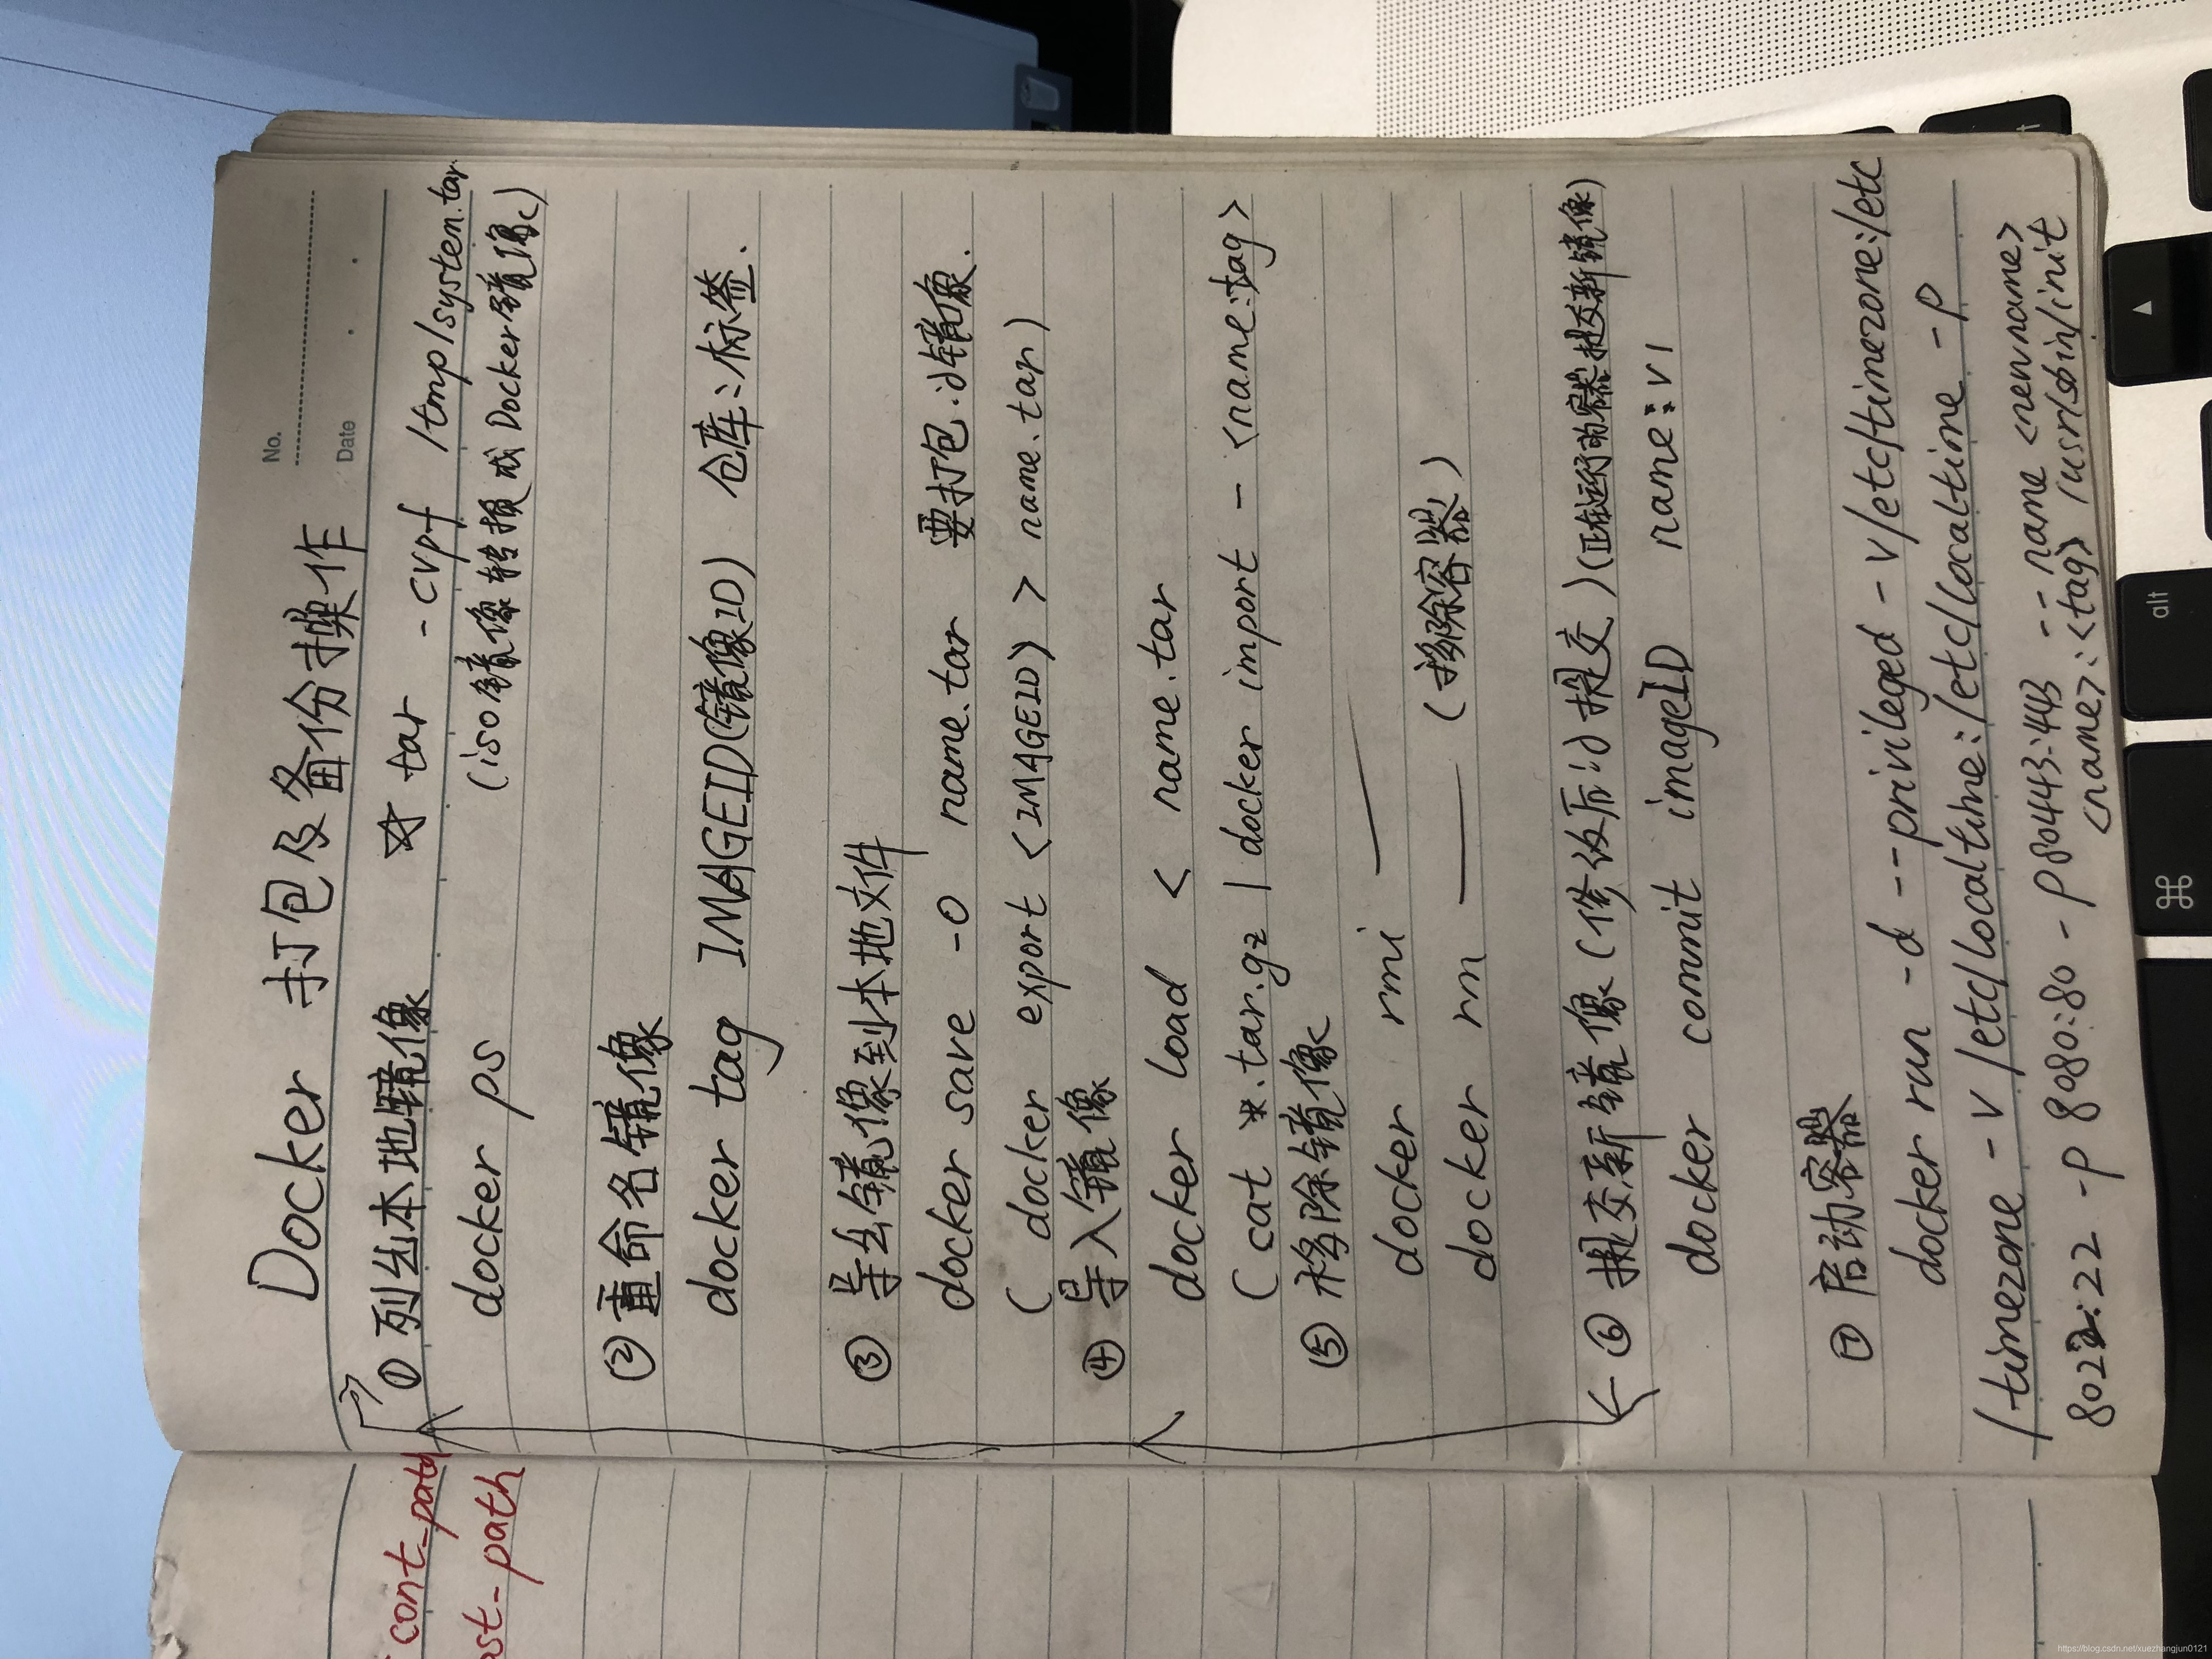 No.
Date
Docker 打包及备份操作
① 列出本地镜像 ☆ tar -cvpf /tmp/system.tar
docker ps (iso镜像转换成Docker镜像)
② 重命名镜像
docker tag IMAGEID(镜像ID) 仓库:标签.
③ 导出镜像到本地文件
docker save -o name.tar 要打包的镜像.
( docker export <IMAGEID> > name.tar)
④ 导入镜像
docker load < name.tar
( cat *.tar.gz | docker import - <name:tag>
⑤ 移除镜像
docker rmi ——
docker rm —— (移除容器)
⑥ 提交新镜像(修改后的提交)(正在运行的容器提交新镜像)
docker commit imageID name:v1
⑦ 启动容器
docker run -d --privileged -v/etc/timezone:/etc
/timezone -v /etc/localtime:/etc/localtime -p
8022:22 -p 8080:80 -p 80443:443 --name <newname>
<name>:<tag> /usr/sbin/init
cont_path
ost_path
alt
⌘
https://blog.csdn.net/xuezhangjun0121